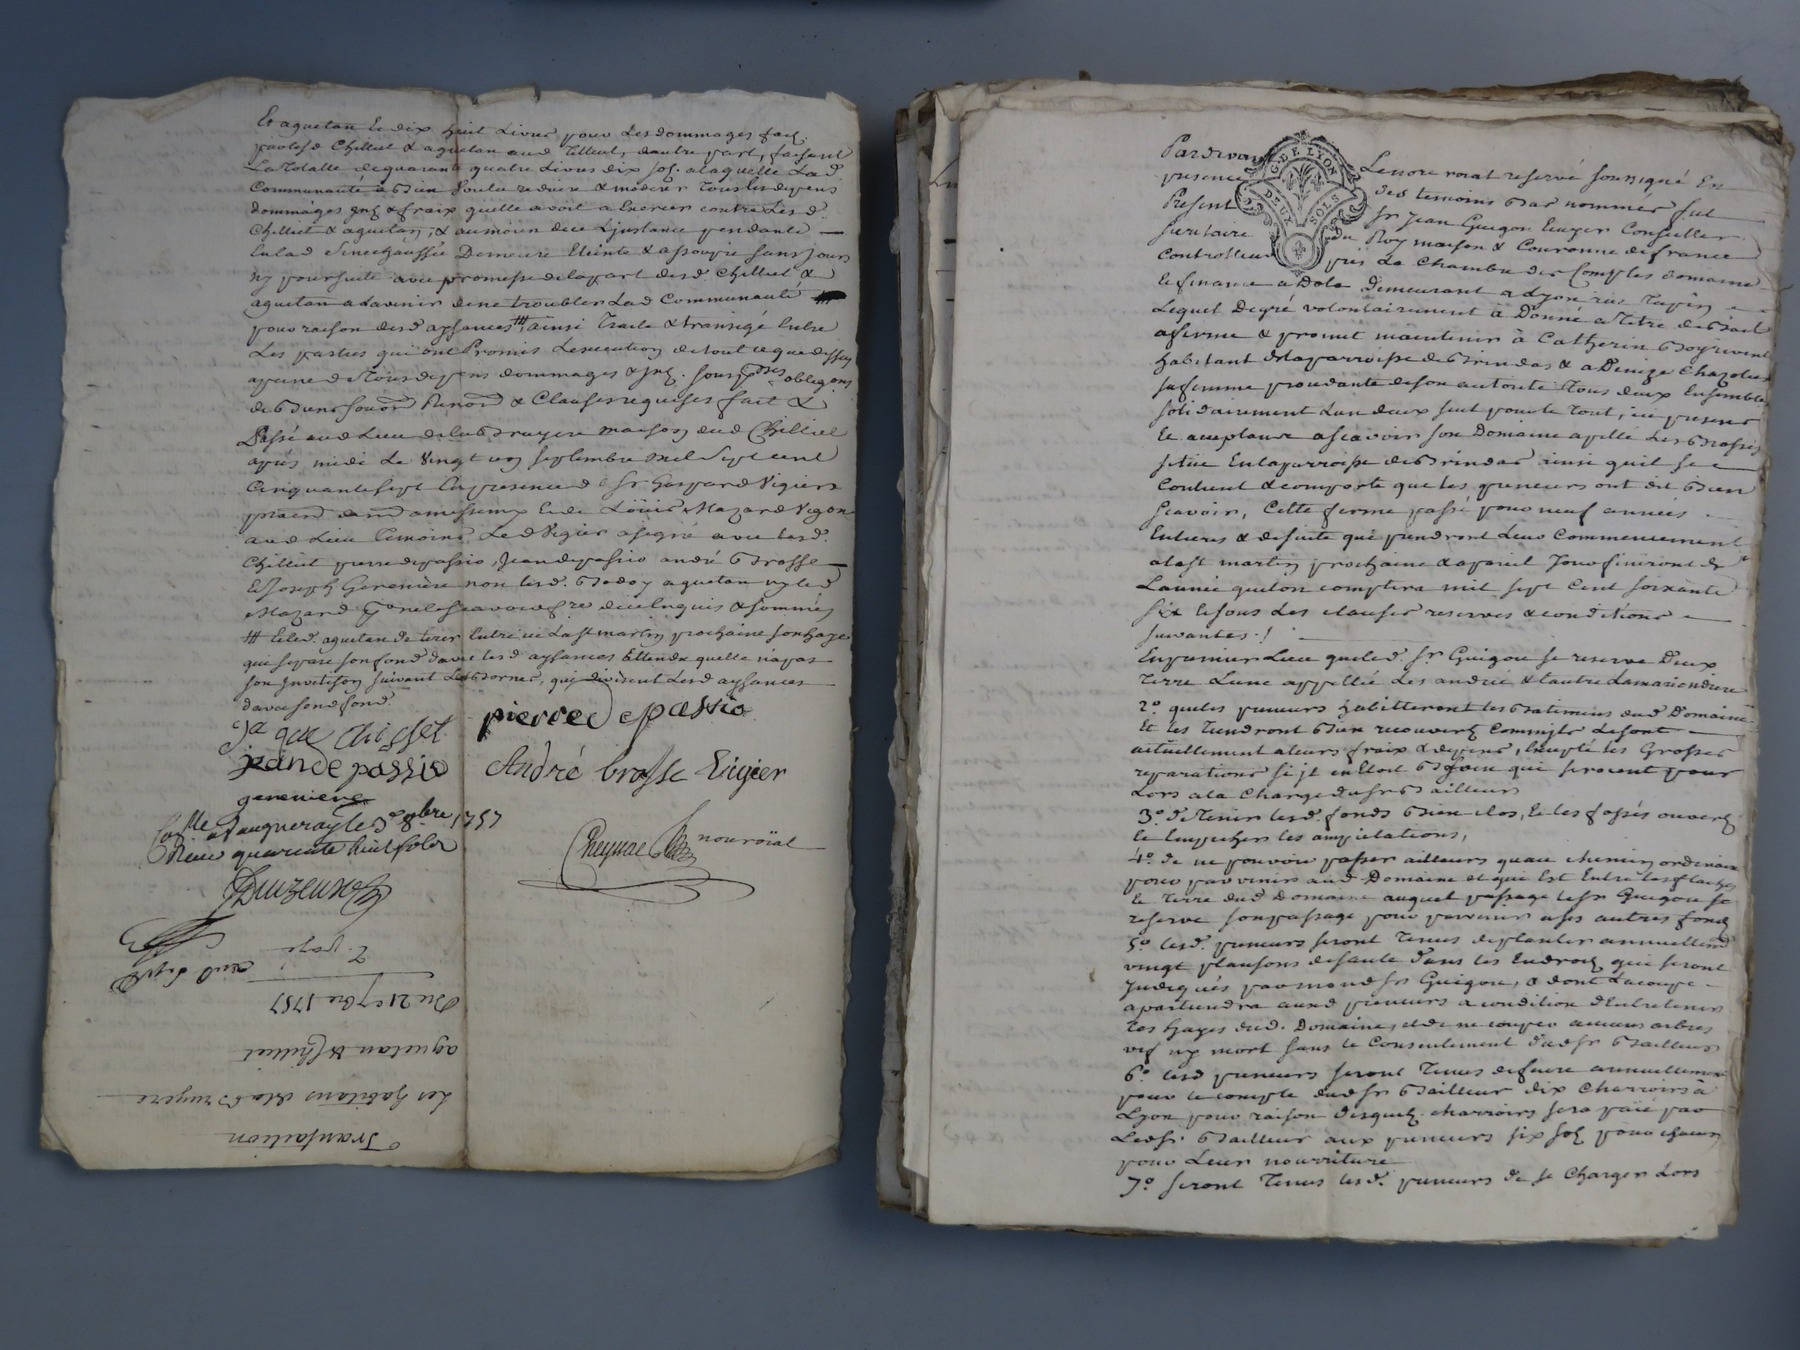 Et aquetan Le dix huit Livres pour les dommages fait
par lesd Chilliet & aquetan aud Tilleul, dautre part, faisant
La Totalle de quarante quatre Livres dix sols a laquelle Lad
Communauté a Bien Voulu reduire & moderer Tous les depens
dommages & fraix quelle avoit a Exercer contre Lesd
Chilliet & aquetan, & au moien dece Linstance pendante
En lad Senechaussée Demeure Eteinte & assoupie sans jours
ny poursuite avec promesse de la part desd Chilliet &
aquetan a Lavenir de ne troubler Lad Communauté
pour raison desd aysances ainsi Traité & transigé Entre
Les parties qui ont Promis Lexecution de tout ce que dessus
a peine de Tous depens dommages & Int. sous obligons
de Biens & Clauses requises fait &
Passé aud Lieu de la Bruyere maison dud Chilliet
apres midi Le Vingt un septembre mil Sept cent
Cinquante sept En presence de Sr Gaspard Vigier
& de Loüis Mazard Vigon
aud Lieu Temoins Led Vigier a signé avec lesd.
Chilliet pierre depassio, Jean depassio andré Brosse
& Joseph Gereniere non lesd. aquetan ny led
Mazard de ce Enquis & sommés
& led. aquetan de tirer Entre ici La St martin prochaine son haye
qui separe son fond davec lesd aysances Attendu quelle n'a pas
son suivant Les Bornes, qui divisent Lesd aysances
davec son fond.
Chillet
pierre depassio
jean de passio
André brosse Vigier
gereniere
Clle a Vaugneray le 3e 8bre 1757
Reçu quarante huit sols
nouroïal
Du 21 7bre 1757
aquetan & Chilliet
Les habitans de la Bruyere
Transaction
Pardevant Le nore roial reservé soussigné En
presence des temoins Bas nommés fut
Present Sr Jean Guigou Ecuyer Conseiller
Secretaire du Roy maison & Couronne de france
Controlleur pres La Chambre des Comptes domaine
G. DE LYON
DEUX SOLS
& finance a Dole demeurant a Lyon rue Tupin
Lequel De gré volontairement à Donné a Titre de Bail
a ferme & promet maintenir à Catherin Boyrivent
habitant de la parroisse de Brindas & a Denize Chazotier
sa femme procedante de son autorité Tous deux Ensemble
solidairement Lun deux seul pour le Tout, ici presents
& acceptans ascavoir son Domaine apellé Les Brosses
scitüe En la parroisse de Brindas ainsi quil se
Contient & comporte que les preneurs ont dit Bien
scavoir, Cette ferme passé pour neuf années
Entieres & de suite qui prendront Leur Commencement
a la St martin prochaine & a pareil Jour finiront de
Lannée que lon comptera mil sept Cent soixante
six & sous Les clauses reserves & conditions
suivantes.
En premier Lieu que led. Sr Guigou se reserve Deux
terre Lune appellée Les andrée & lautre La mariendiere
2° que les preneurs habitteront les Batimens dud Domaine
& les Tiendront Bien recouverts comme ils Le sont
actuellement a leurs fraix & depens, Excepté les Grosses
reparations si il en Etoit Besoin qui seroient pour
Lors a la Charge dud Sr Bailleur
3° de Tenir lesd. fonds Bien clos, & les fossés ouverts
& Empecher les ampietations,
4° de ne pouvoir passer ailleurs quau chemin ordinaire
pour parvenir aud Domaine et qui Est Entre les flaches
& Terre dud Domaine auquel passage led Sr Guigou se
reserve son passage pour parvenir a ses autres fonds
5° lesd. preneurs seront Tenus de planter annuellemt
vingt plansons de saule dans les Endroits qui seront
Indiqués par mond Sr Guigou, & dont La coupe
apartiendra auxd preneurs a condition d'Entretenir
les hayes dud. Domaine, et de ne couper aucuns arbres
vif ny mort sans le Consentement dud Sr Bailleur
6° lesd preneurs seront Tenus de faire annuellement
pour le compte dud Sr Bailleur dix Charroirs à
Lyon pour raison desquels charroirs sera païé par
Led Sr. Bailleur aux preneurs six sols pour chacun
pour Leur nourriture
7° seront Tenus lesd. preneurs de se Charger Lors